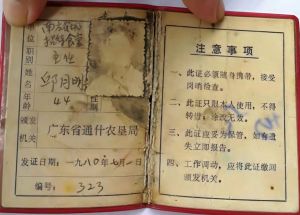 职别
姓名
邱月
年龄
44
性别
颁发
机关
广东省通什农垦局
发证日期：一九八〇年七月一日
编号：323
注意事项
一、此证必须随身携带，接受
岗哨检查。
二、此证只限本人使用，不得
转借，涂改无效。
三、此证应妥为保管，如有遗
失立即报告。
四、工作调动，应将此证缴回
颁发机关。